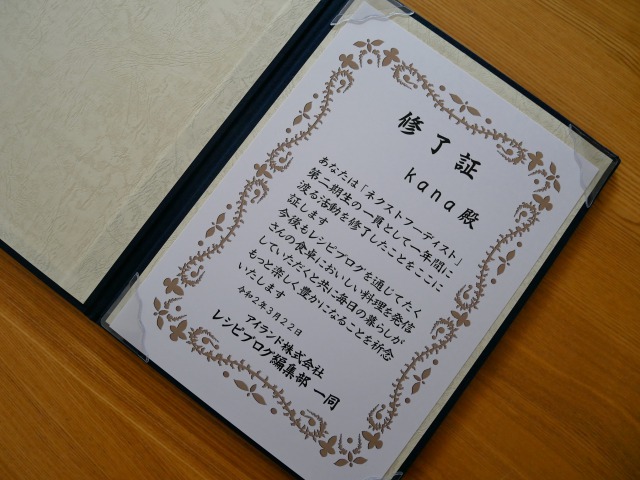 修了証
kana 殿
あなたは「ネクストフーディスト」
第二期生の一員として一年間に
渡る活動を修了したことをここに
証します
今後もレシピブログを通じてたく
さんの食卓においしい料理を発信
していただくと共に毎日の暮らしが
もっと楽しく豊かになることを祈念
いたします
令和2年3月22日
アイランド株式会社
レシピブログ編集部 一同